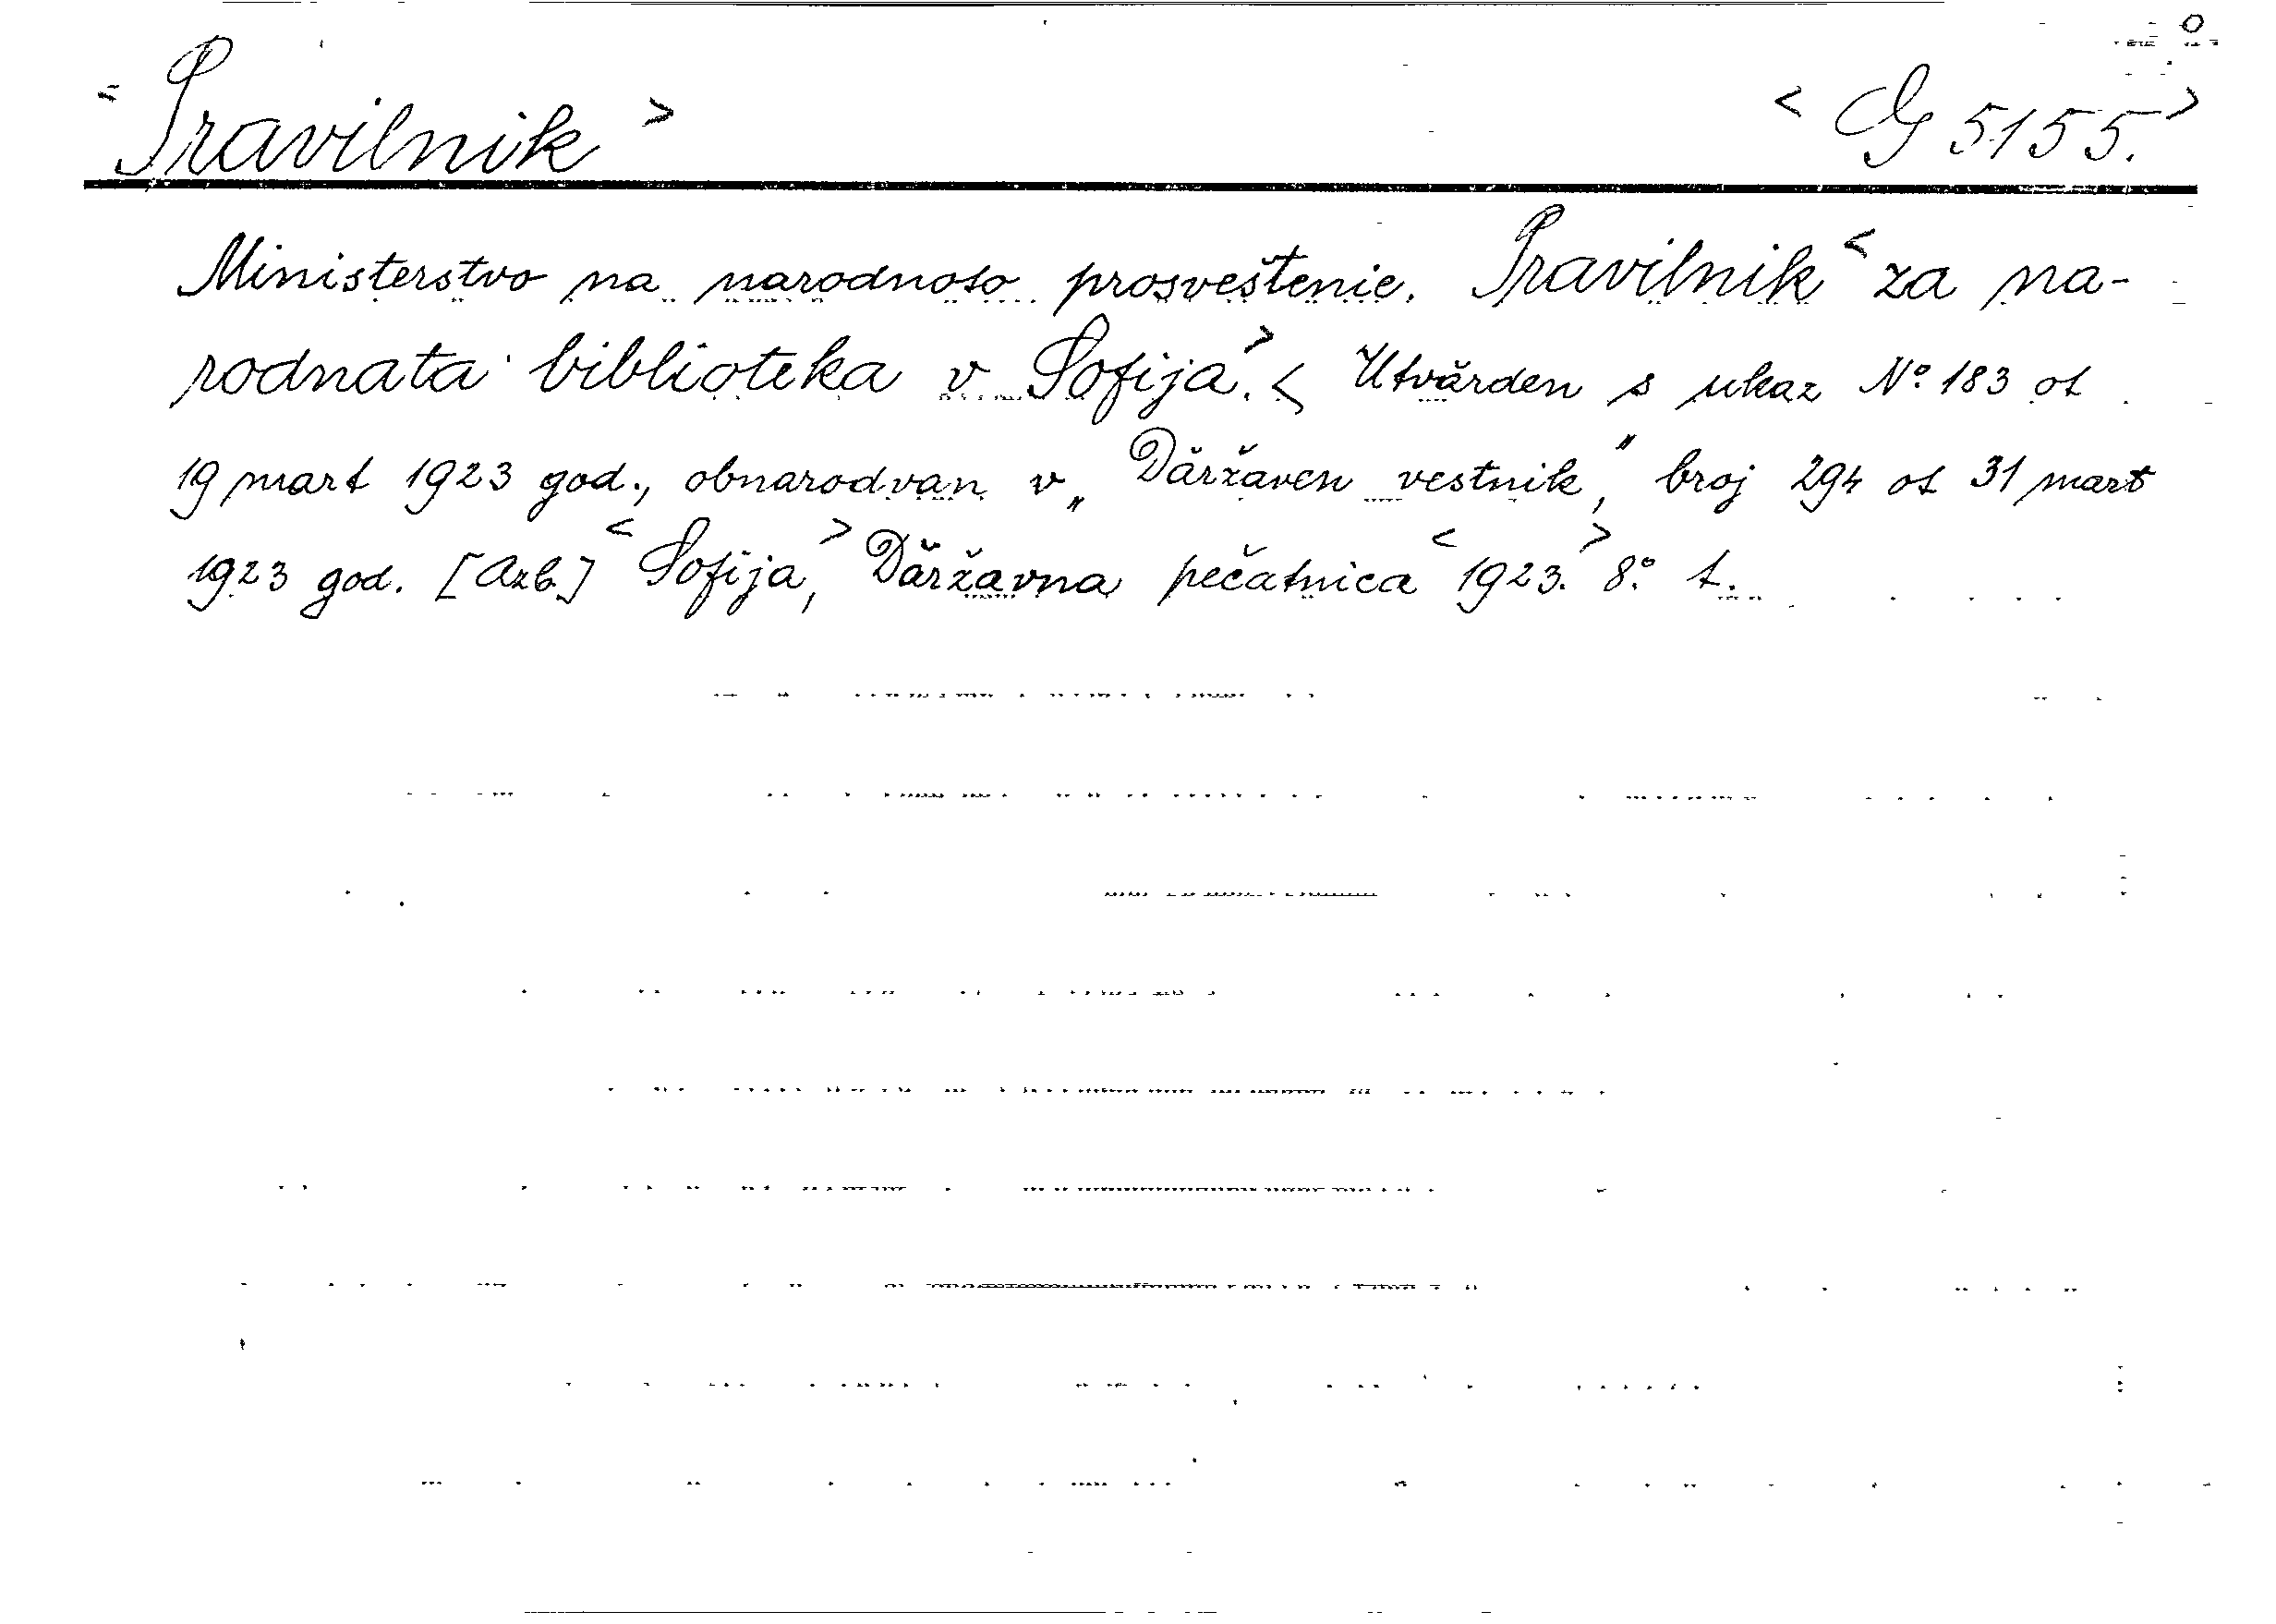 <Pravilnik> <G 5155.>
Ministerstvo na narodnoto prosveštenie. Pravilnik < za na-
rodnata biblioteka v Sofija.> < Utvărden s ukaz No. 183 ot
19 mart 1923 god., obnarodvan v „Dăržaven vestnik", broj 294 ot 31 mart
1923 god. [Azb.] <Sofija,> Dăržavna pečatnica <1923.> 8o. t.